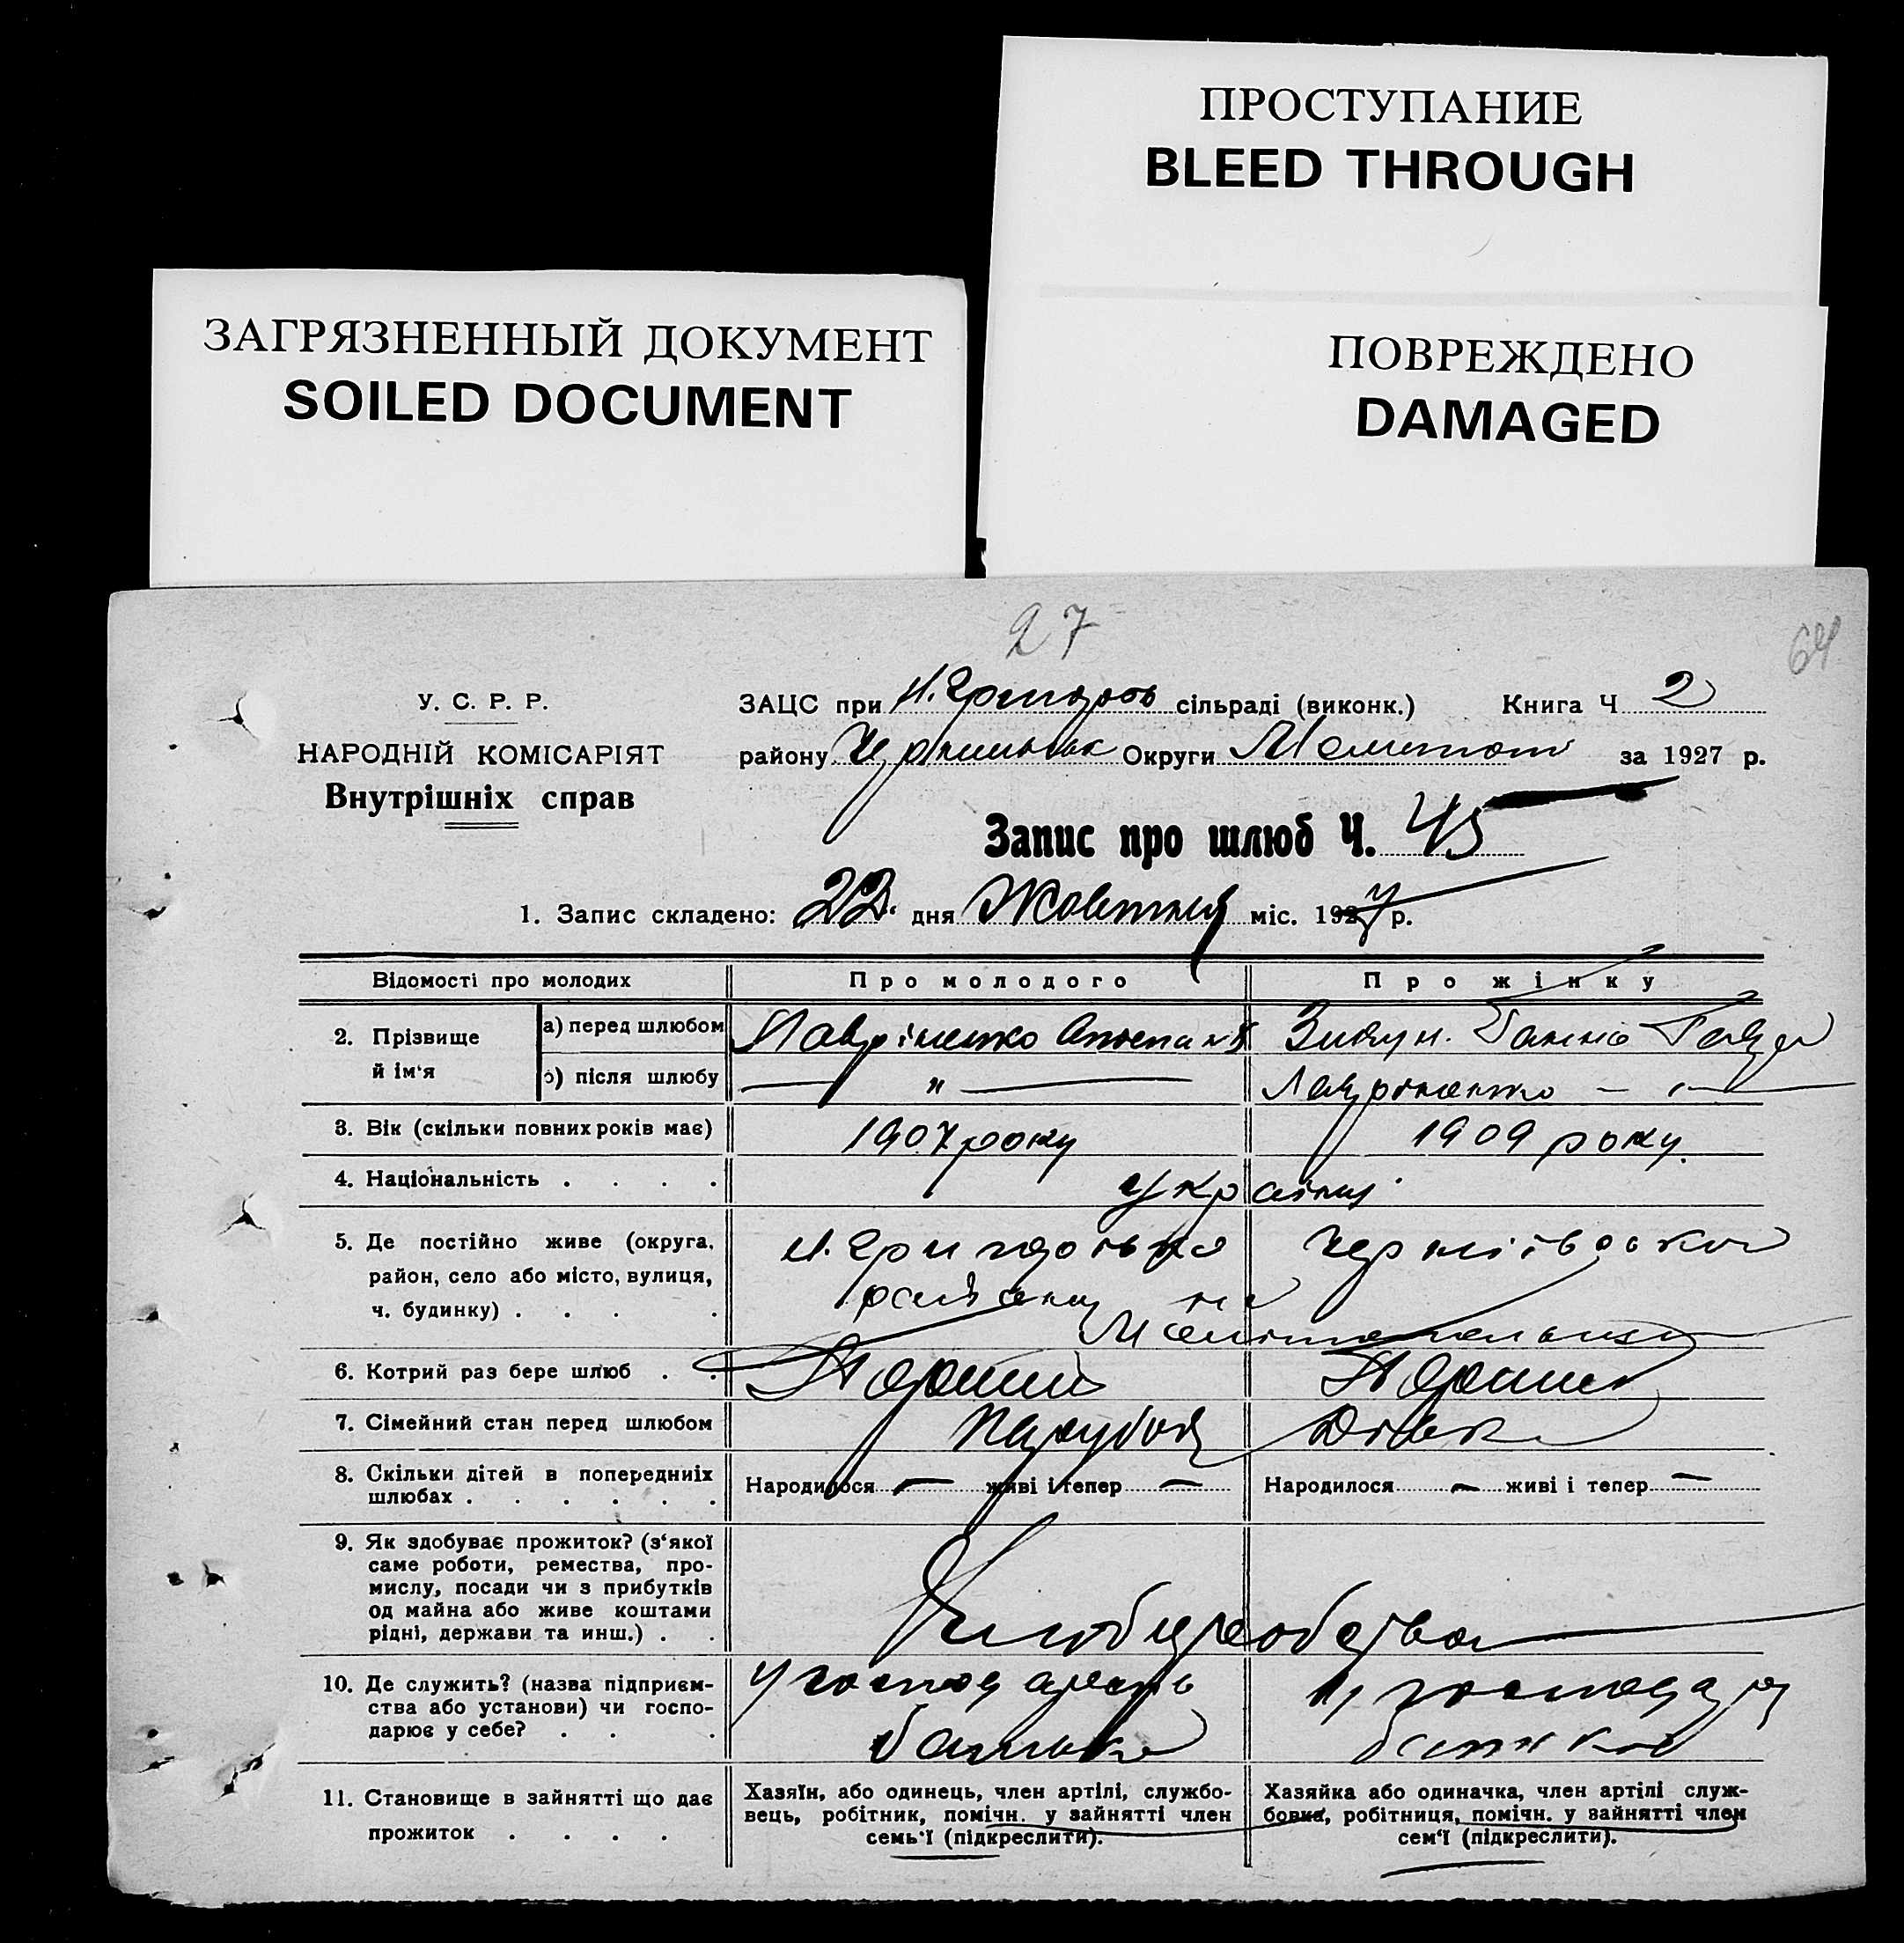 ПРОСТУПАНИЕ
BLEED THROUGH
ЗАГРЯЗНЕННЫЙ ДОКУМЕНТ
SOILED DOCUMENT
ПОВРЕЖДЕНО
DAMAGED
27
64
У. С. Р. Р.
НАРОДНІЙ КОМІСАРІЯТ
Внутрішніх справ
ЗАЦС при сільраді (виконк.) Книга Ч 2
району Округи Мелитоп за 1927 р.
Запис про шлюб Ч. 45
1. Запис складено: 22 дня Жовтня міс. 1927 р.
Відомості про молодих Про молодого Про жінку
2. Прізвище й ім‘я
а) перед шлюбом Лавріненко Ганна
б) після шлюбу — " — Лавріненко — " —
3. Вік (скільки повних років має) 1907 року 1909 року.
4. Національність . . . . українці
5. Де постійно живе (округа,
район, село або місто, вулиця,
ч. будинку) . . . .
6. Котрий раз бере шлюб . . Перший Перший
7. Сімейний стан перед шлюбом Парубок Дівка
8. Скільки дітей в попередніх
шлюбах . . . . . .
Народилося — живі і тепер — Народилося — живі і тепер —
9. Як здобуває прожиток? (з‘якої
саме роботи, ремества, про-
мислу, посади чи з прибутків
од майна або живе коштами
рідні, держави та инш.) . .
Хліборобства
10. Де служить? (назва підприєм-
ства або установи) чи госпо-
дарює у себе? . . .
у
батька
у
батька
11. Становище в зайнятті що дає
прожиток . . . .
Хазяїн, або одинець, член артілі, службо-
вець, робітник, помічн. у зайнятті член
семь‘ї (підкреслити).
Хазяйка або одиначка, член артілі служ-
бовка, робітниця, помічн. у зайнятті член
сем‘ї (підкреслити).